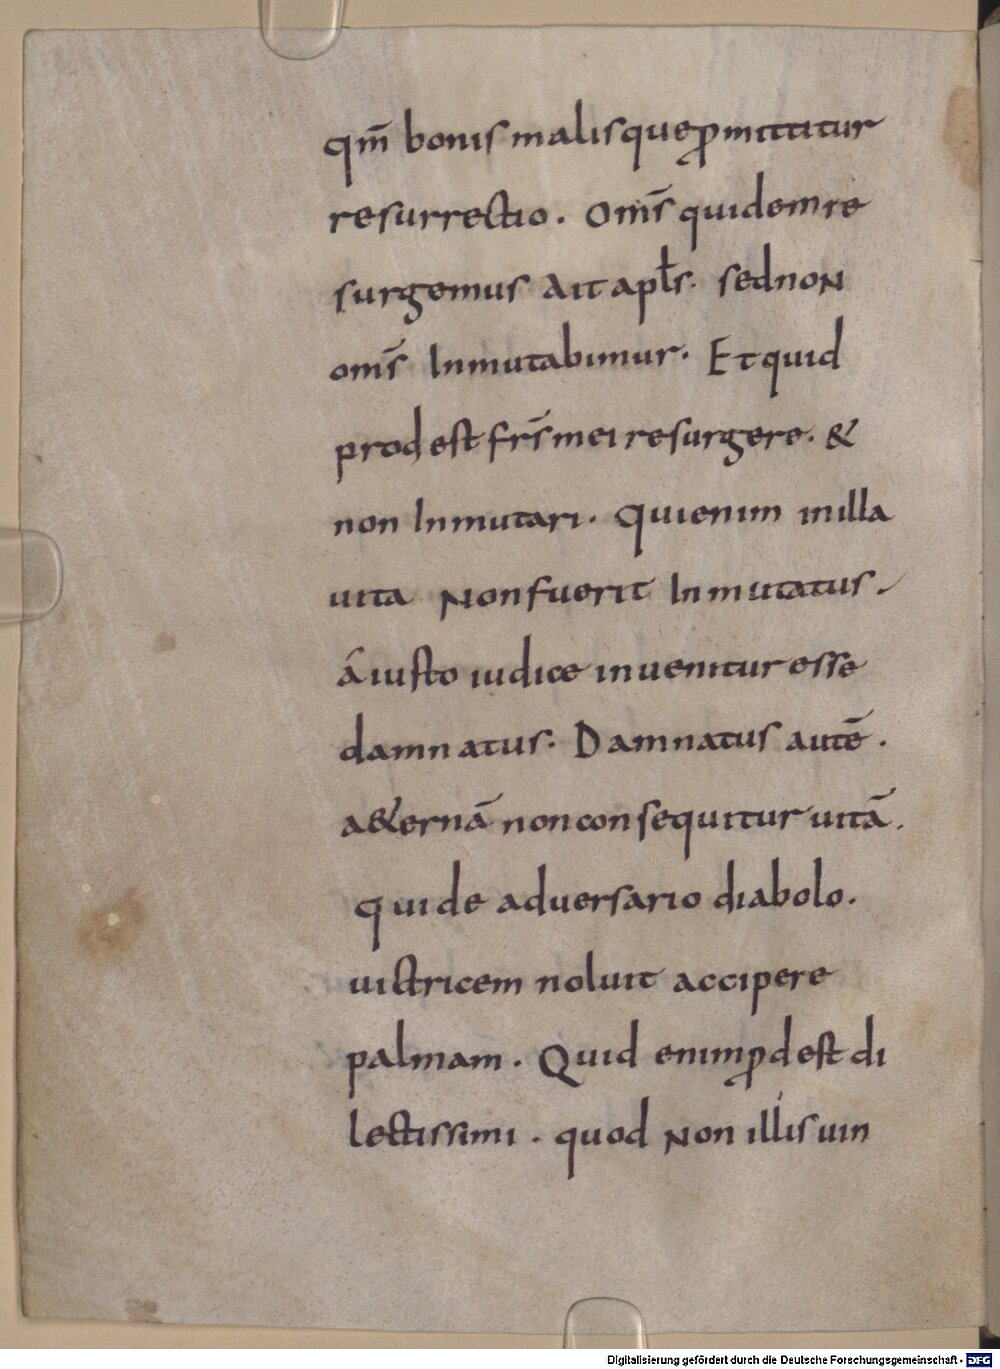 qm̄ bonis malisque ꝓmittitur
resurrectio. Om̅s quidem re
surgemus Ait apl̅s. sed noN
om̅s Inmutabimur. Et quid
prodest fr̅s mei resurgere. &
non Inmutari. Qui enim in illa
uita Non fuerit Inmutatus.
á iusto iudice inuenitur esse
damnatus. Damnatus autē.
a&ernā non consequitur uitā.
qui de aduersario diabolo.
uictricem noluit accipere
palmam. Quid enim ꝓdest di
lectissimi. quod Non illis uin
Digitalisierung gefördert durch die Deutsche Forschungsgemeinschaft - DFG